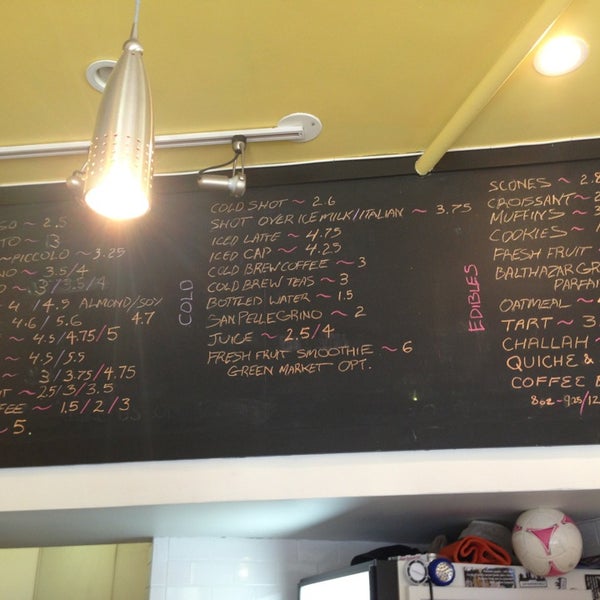 SO ~ 2.5
TO ~ 13
~ PICCOLO ~ 3.25
NO ~ 3.5/4
~ 3/3.5/4
4 / 4.5 ALMOND/SOY
4.6 / 5.6 4.7
~ 4.5/4.75/5
~ 4.5/5.5
~ 3/3.75/4.75
T ~ 2.5/3/3.5
FEE ~ 1.5/2/3
~ 5.
COLD
COLD SHOT ~ 2.6
SHOT OVER ICE MILK//ITALIAN ~ 3.75
ICED LATTE ~ 4.75
ICED CAP ~ 4.25
COLD BREW COFFEE ~ 3
COLD BREW TEAS ~ 3
BOTTLED WATER ~ 1.5
SAN PELLEGRINO ~ 2
JUICE ~ 2.5/4
FRESH FRUIT SMOOTHIE ~ 6
GREEN MARKET OPT.
EDIBLES
SCONES ~ 2.8
CROISSANT ~ 2
MUFFINS ~ 3
COOKIES ~
FRESH FRUIT ~
BALTHAZAR GR
PARFAI
OATMEAL ~ 4
TART ~ 3
CHALLAH ~
QUICHE &
COFFEE B
8oz - 9.25/12